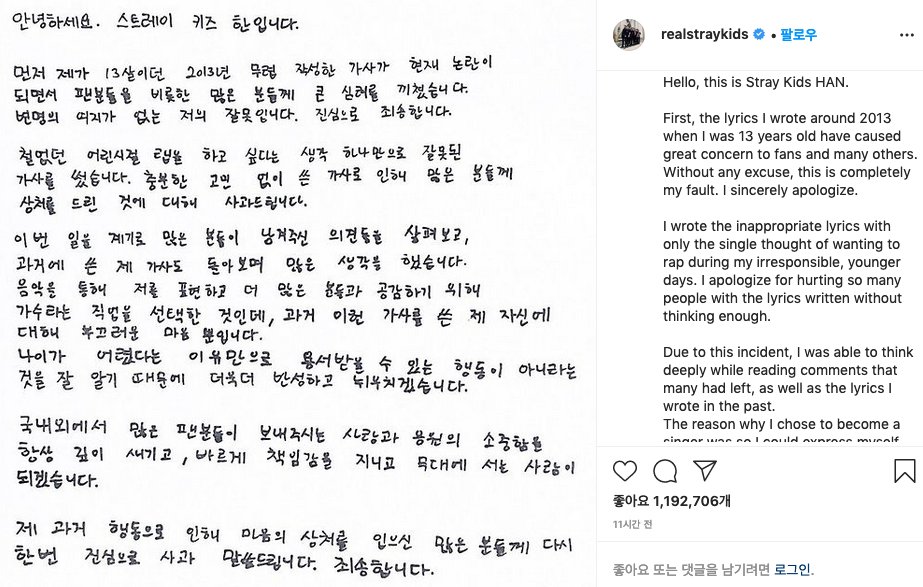 안녕하세요. 스트레이 키즈 한입니다.
먼저 제가 13살이던 2013년 무렵 작성한 가사가 현재 논란이
되면서 팬분들을 비롯한 많은 분들께 큰 심려를 끼쳤습니다.
변명의 여지가 없는 저의 잘못입니다. 진심으로 죄송합니다.
철없던 어린시절 랩을 하고 싶다는 생각 하나만으로 잘못된
가사를 썼습니다. 충분한 고민 없이 쓴 가사로 인해 많은 분들께
상처를 드린 것에 대해 사과드립니다.
이번 일을 계기로 많은 분들이 남겨주신 의견들을 살펴보고,
과거에 쓴 제 가사도 돌아보며 많은 생각을 했습니다.
음악을 통해 저를 표현하고 더 많은 분들과 공감하기 위해
가수라는 직업을 선택한 것인데, 과거 이런 가사를 쓴 제 자신에
대해 부끄러운 마음 뿐입니다.
나이가 어렸다는 이유만으로 용서받을 수 있는 행동이 아니라는
것을 잘 알기 때문에 더욱더 반성하고 뉘우치겠습니다.
국내외에서 많은 팬분들이 보내주시는 사랑과 응원의 소중함을
항상 깊이 새기고, 바르게 책임감을 지니고 무대에 서는 사람이
되겠습니다.
제 과거 행동으로 인해 마음의 상처를 입으신 많은 분들께 다시
한번 진심으로 사과 말씀드립니다. 죄송합니다.
realstraykids • 팔로우
Hello, this is Stray Kids HAN.
First, the lyrics I wrote around 2013
when I was 13 years old have caused
great concern to fans and many others.
Without any excuse, this is completely
my fault. I sincerely apologize.
I wrote the inappropriate lyrics with
only the single thought of wanting to
rap during my irresponsible, younger
days. I apologize for hurting so many
people with the lyrics written without
thinking enough.
Due to this incident, I was able to think
deeply while reading comments that
many had left, as well as the lyrics I
wrote in the past.
The reason why I chose to become a
singer was so I could express myself
좋아요 1,192,706개
11시간 전
좋아요 또는 댓글을 남기려면 로그인.